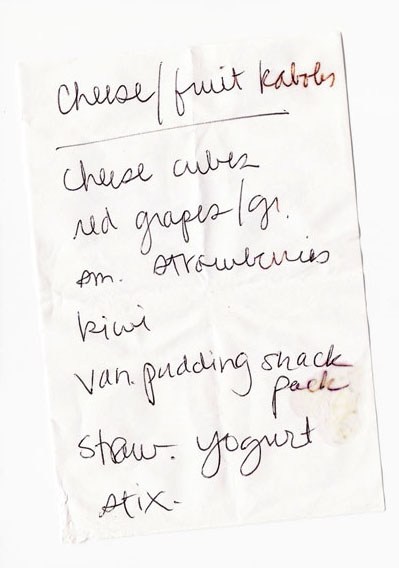 Cheese/fruit kabobs
Cheese cubes
red grapes/gr.
sm. strawberries
kiwi
Van. pudding snack
pack
straw. yogurt
stix.